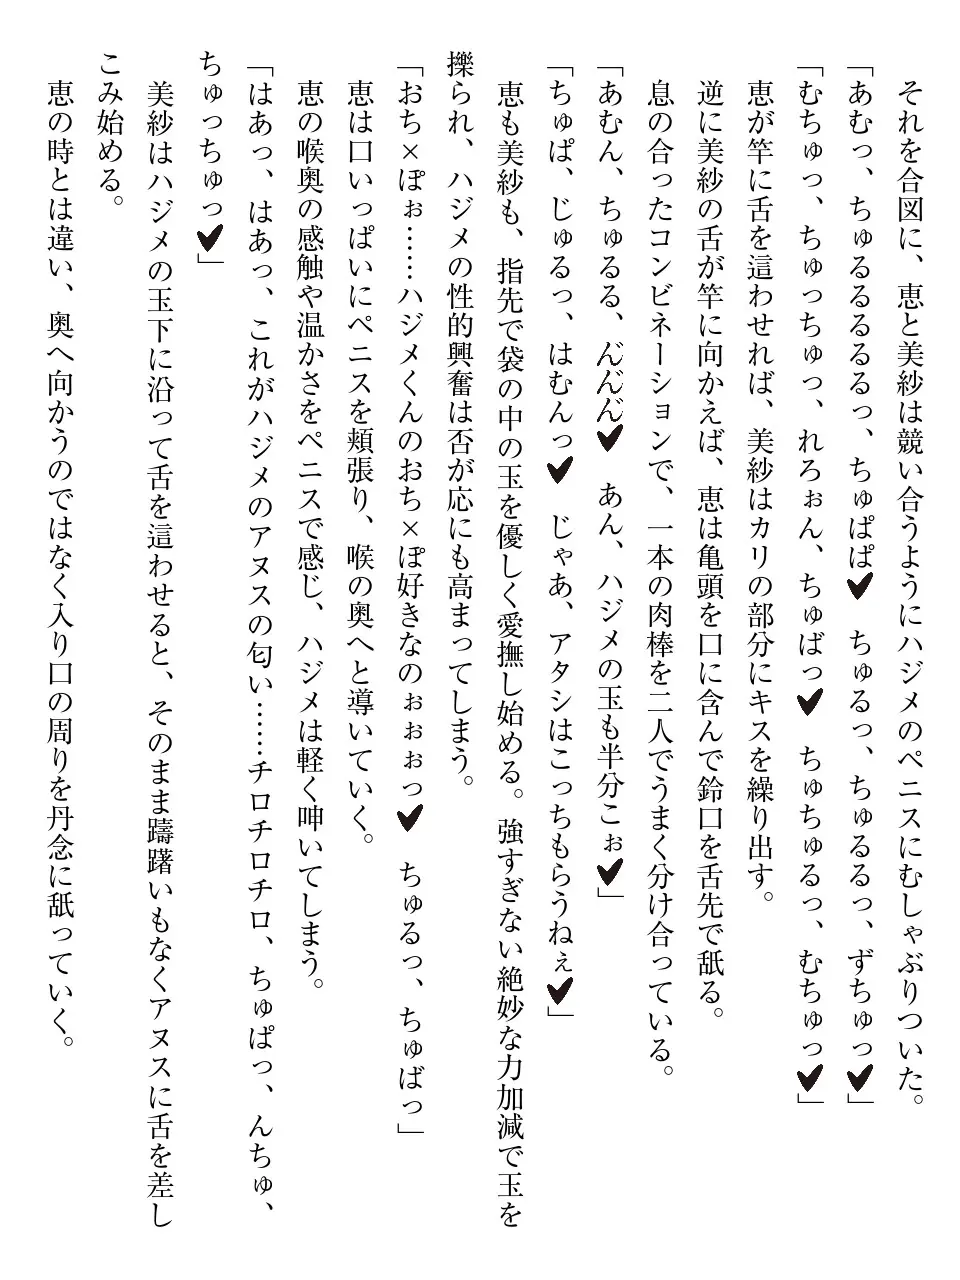 それを合図に、恵と美紗は競い合うようにハジメのペニスにむしゃぶりついた。
「あむっ、ちゅるるるるるっ、ちゅぱぱ♥　ちゅるっ、ちゅるるっ、ずちゅっ♥」
「むちゅっ、ちゅっちゅっ、れろぉん、ちゅばっ♥　ちゅちゅるっ、むちゅっ♥」
恵が竿に舌を這わせれば、美紗はカリの部分にキスを繰り出す。
逆に美紗の舌が竿に向かえば、恵は亀頭を口に含んで鈴口を舌先で舐る。
息の合ったコンビネーションで、一本の肉棒を二人でうまく分け合っている。
「あむん、ちゅるる、ん゛ん゛ん゛♥　あん、ハジメの玉も半分こぉ♥」
「ちゅぱ、じゅるっ、はむんっ♥　じゃあ、アタシはこっちもらうねぇ♥」
恵も美紗も、指先で袋の中の玉を優しく愛撫し始める。強すぎない絶妙な力加減で玉を
擽られ、ハジメの性的興奮は否が応にも高まってしまう。
「おち×ぽぉ……ハジメくんのおち×ぽ好きなのぉぉぉっ♥　ちゅるっ、ちゅばっ」
恵は口いっぱいにペニスを頬張り、喉の奥へと導いていく。
恵の喉奥の感触や温かさをペニスで感じ、ハジメは軽く呻いてしまう。
「はあっ、はあっ、これがハジメのアヌスの匂い……チロチロチロ、ちゅぱっ、んちゅ、
ちゅっちゅっ♥」
美紗はハジメの玉下に沿って舌を這わせると、そのまま躊躇いもなくアヌスに舌を差し
こみ始める。
恵の時とは違い、奥へ向かうのではなく入り口の周りを丹念に舐っていく。